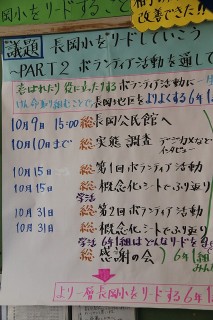 岡小をリードすること
改善できた
議題 長岡小をリードしていこう
～PART2 ボランティア活動を通して
長岡地区をよりよくする6年1
10月9日 15:00 総 長岡公民館へ
10月10日まで 総 実態調査 デジカメなどで
インタビュー
10月15日 総 第1回ボランティア活動
10月15日 総 概念化シートでふり返り
学活
10月31日 総 第2回ボランティア活動
10月31日 総 概念化シートでふり返り
学活 6年1組はどんなリードを
総 感謝の会 6年1組
より一層長岡小をリードする6年1